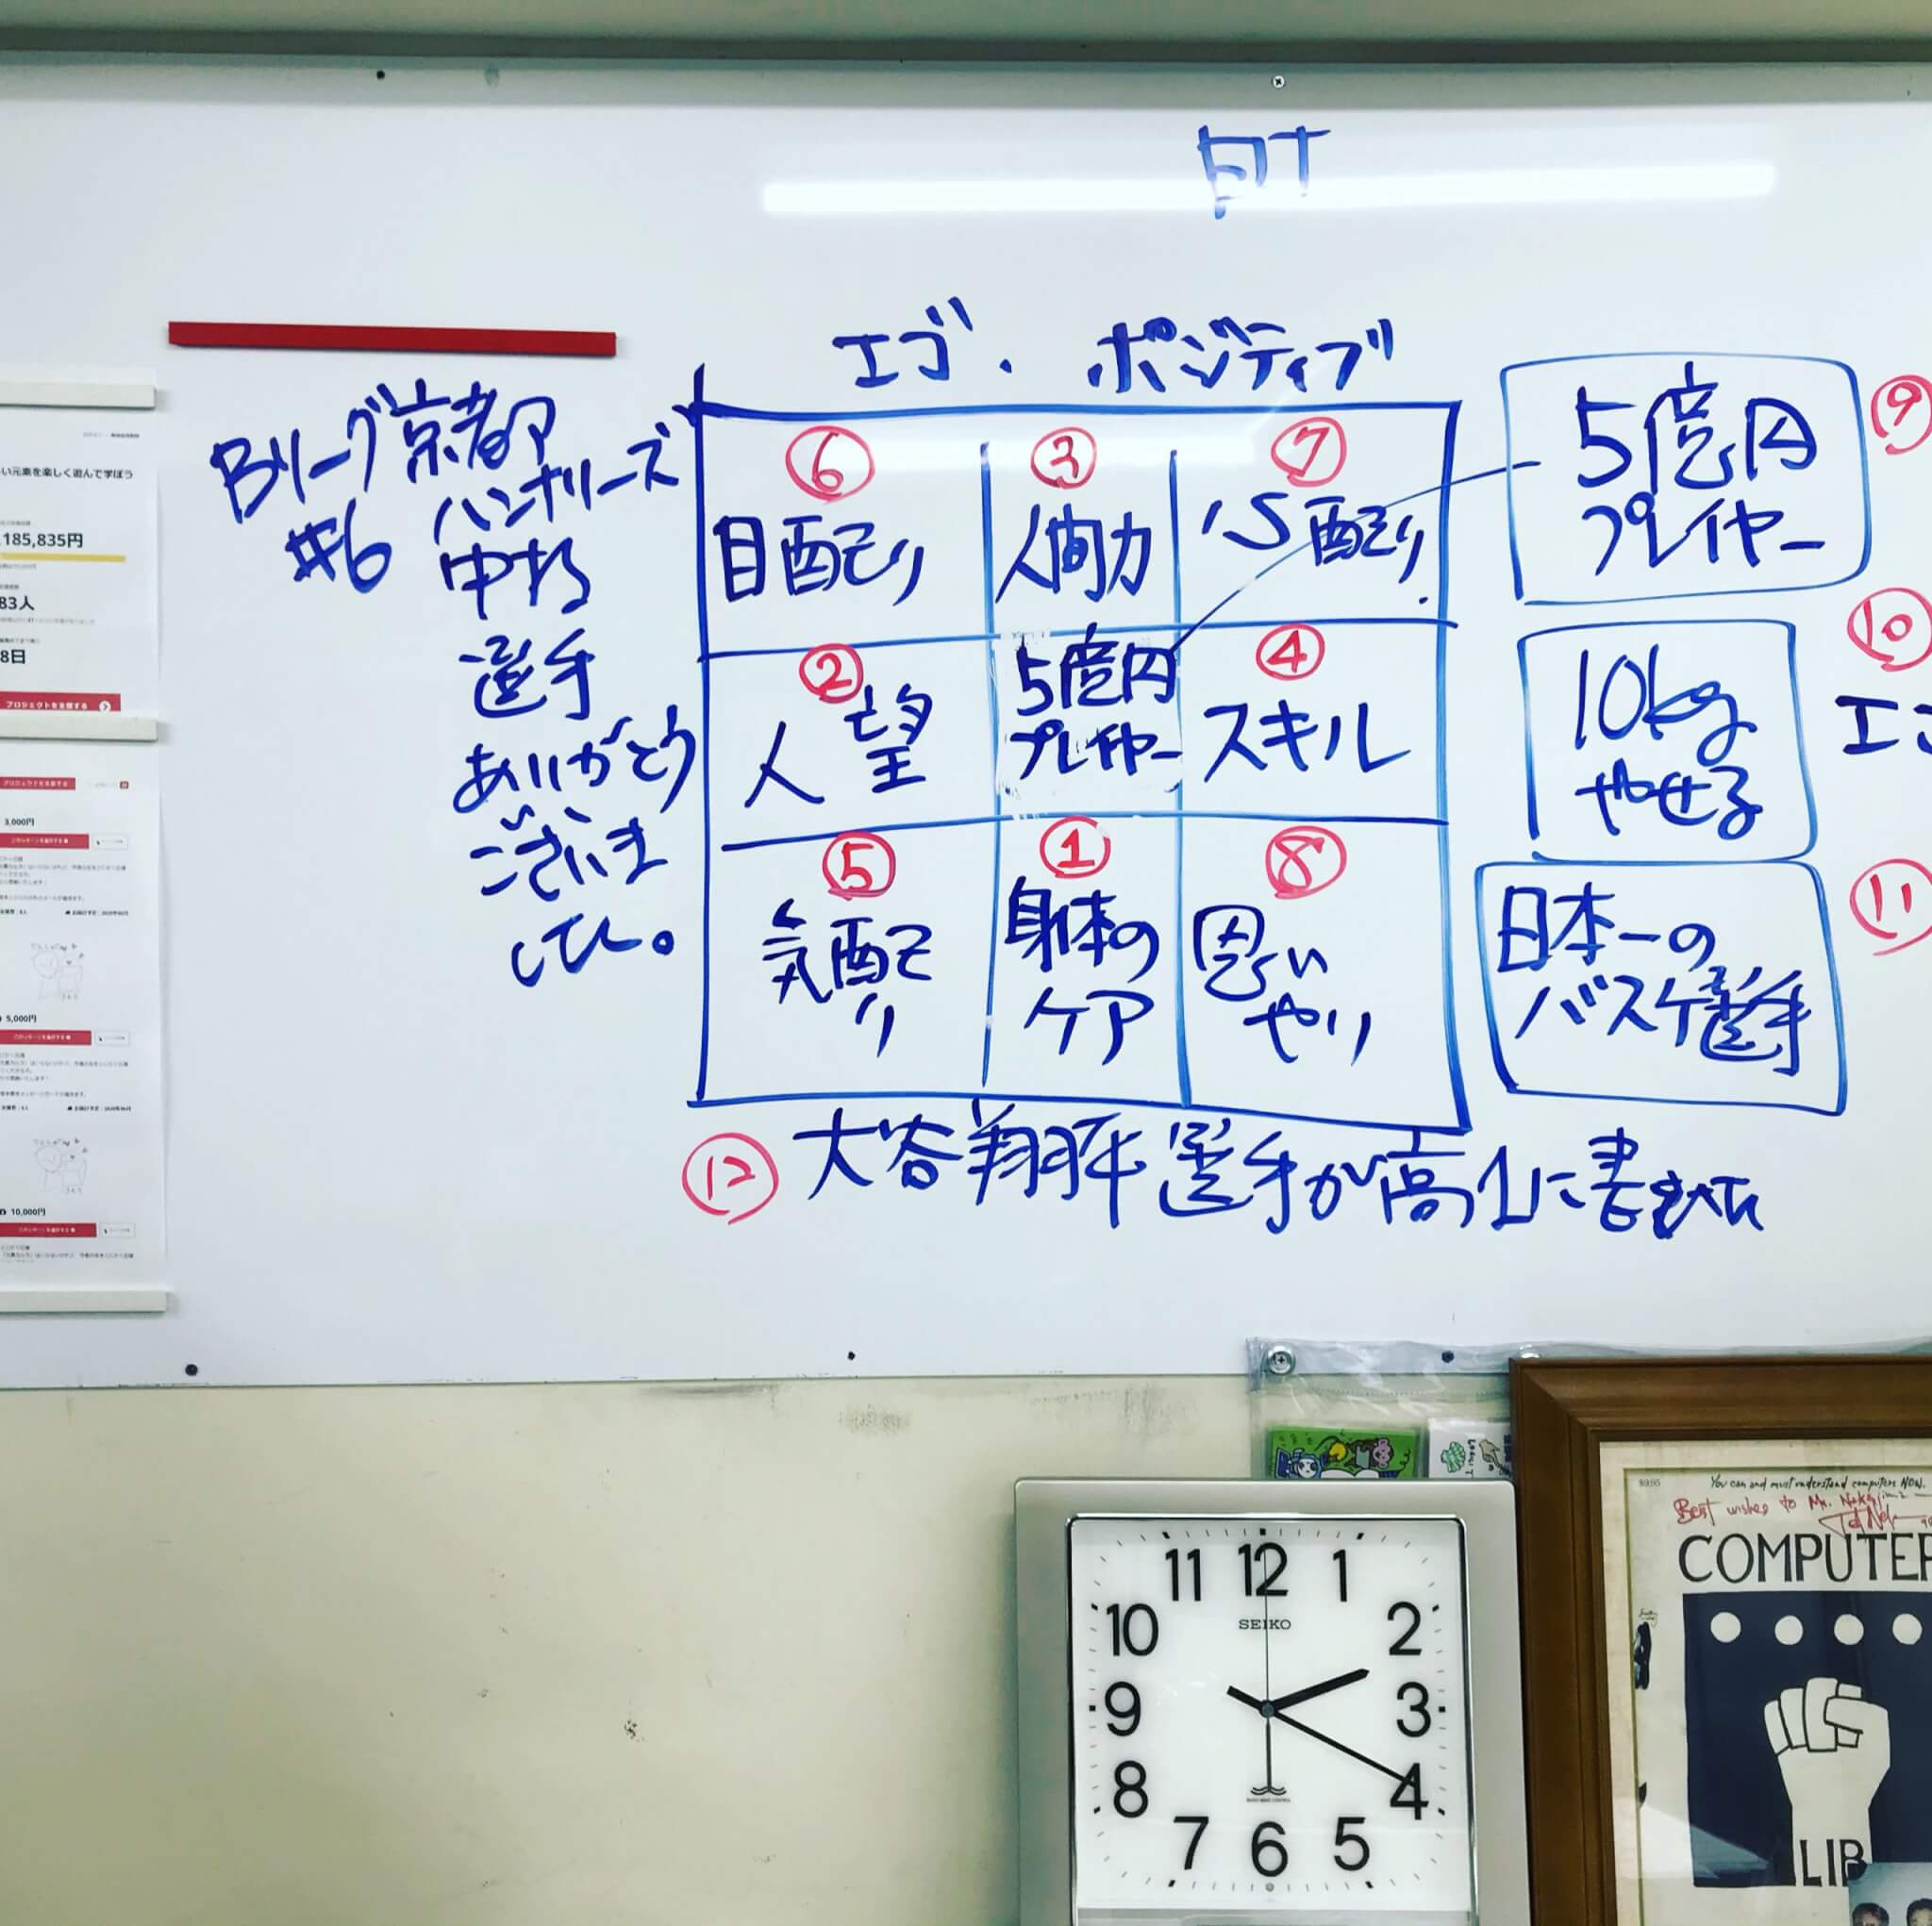 エゴ・ポジティブ
Bリーグ京都
ハンナリーズ
#6
中村
選手
ありがとう
ございま
した。
⑥
目配り
③
人間力
⑦
心配り
②
人望
5億円
プレイヤー
④
スキル
⑤
気配
り
①
身体の
ケア
⑧
思い
やり
5億円
プレイヤー
⑨
10kg
やせる
⑩
エゴ
日本一の
バスケ選手
⑪
⑫
大谷翔平選手が高1に書
い元素を楽しく遊んで学ぼう
185,835円
83人
8日
プロジェクトを支援する
3,000円
5,000円
10,000円
11 12 1
10 2
SEIKO
9 3
8 4
7 6 5
You can and must understand computers NOW.
Best wishes to Mr.
COMPUTER
LIB